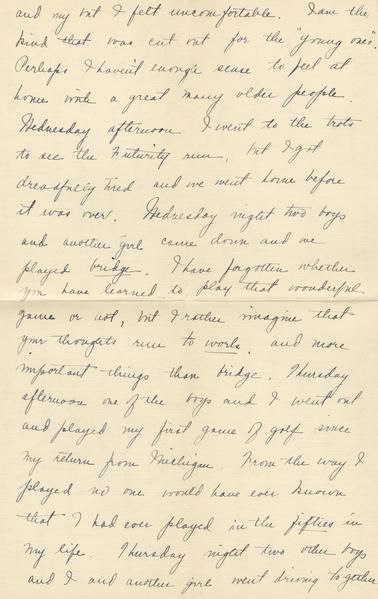 and my but I felt uncomfortable. I am the
kind that was cut out for the "young ones".
Perhaps I haven't enough sense to feel at
home with a great many older people.
Wednesday afternoon I went to the trots
to see the Futurity run, but I got
dreadfully tired and we went home before
it was over. Wednesday night two boys
and another girl came down and we
played bridge. I have forgotten whether
you have learned to play that wonderful
game or not, but I rather imagine that
your thoughts run to work and more
important things than bridge. Thursday
afternoon one of the boys and I went out
and played my first game of golf since
my return from Michigan. From the way I
played no one would have ever known
that I had ever played in the fifties in
my life. Thursday night two other boys
and I and another girl went driving together